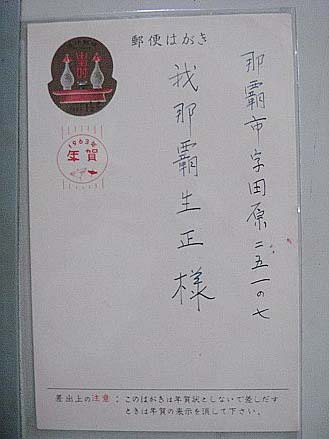 郵便はがき
那覇市字田原二五一の七
我那覇生正様
1963年
年賀
差出上の注意：このはがきは年賀状としないで差しだす
ときは年賀の表示を消して下さい。